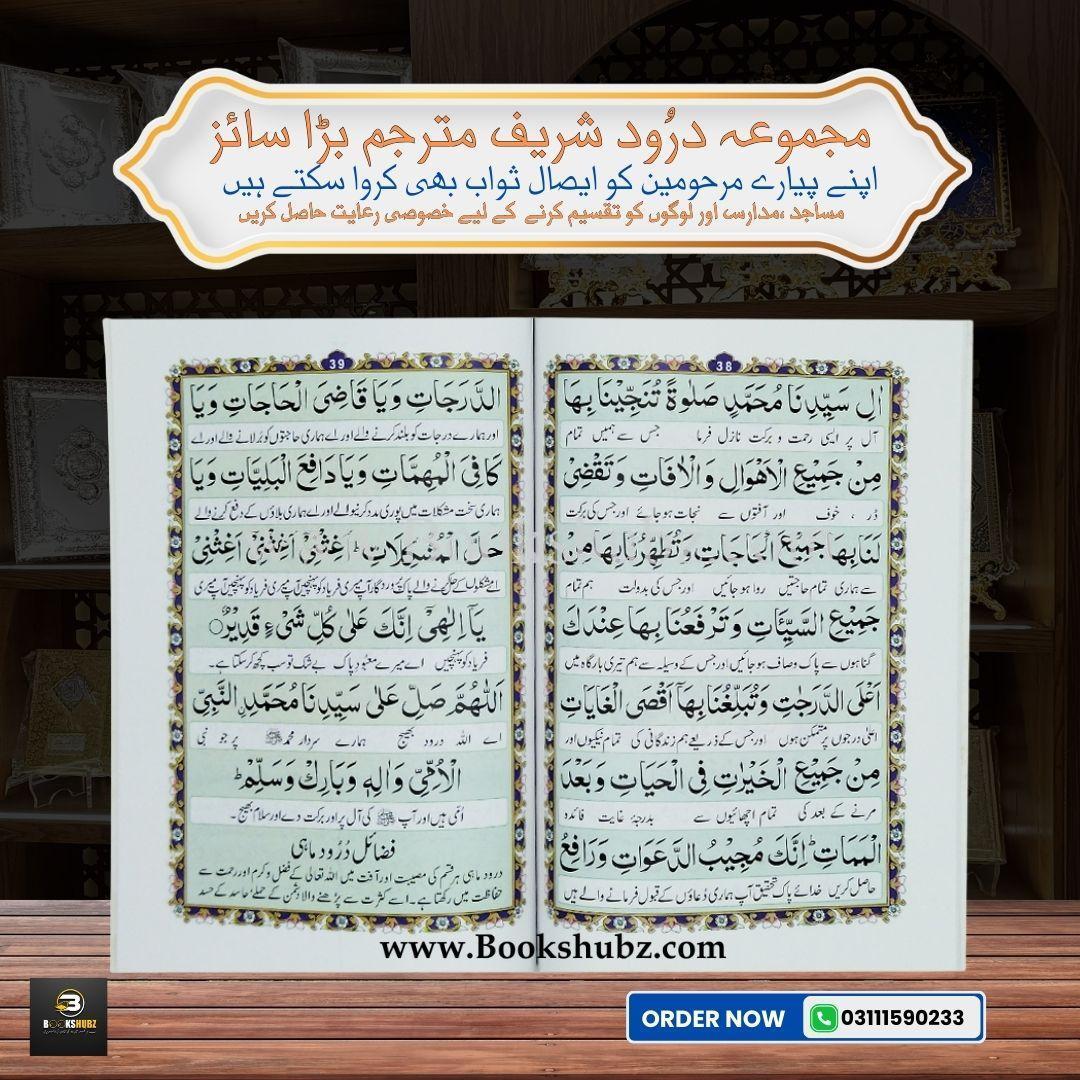 مجموعہ درُود شریف مترجم بڑا سائز
اپنے پیارے مرحومین کو ایصال ثواب بھی کروا سکتے ہیں
مساجد ،مدارس اور لوگوں کو تقسیم کرنے کے لیے خصوصی رعایت حاصل کریں
38
اٰلِ سَيِّدِنَا مُحَمَّدٍ صَلٰوةً تُنَجِّيْنَا بِهَا
آل پر ایسی رحمت و برکت نازل فرما جس سے ہمیں تمام
مِنْ جَمِيْعِ الْاَهْوَالِ وَالْاٰفَاتِ وَتَقْضِىْ
ڈر ، خوف اور آفتوں سے نجات ہوجائے اورجس کی برکت
لَنَا بِهَا جَمِيْعَ الْحَاجَاتِ وَتُطَهِّرُنَا بِهَا مِنْ
سے ہماری تمام حاجتیں روا ہوجائیں اورجس کی بدولت ہم تمام
جَمِيْعِ السَّيِّئَاتِ وَتَرْفَعُنَا بِهَا عِنْدَكَ
گناہوں سے پاک وصاف ہوجائیں اورجس کے وسیلہ سے ہم تیری بارگاہ میں
اَعْلَى الدَّرَجٰتِ وَتُبَلِّغُنَا بِهَآ اَقْصَى الْغَايَاتِ
اعلیٰ درجوں پر متمکن ہوں اورجس کے ذریعے ہم زندگانی کی تمام نیکیوں اور
مِنْ جَمِيْعِ الْخَيْرٰتِ فِى الْحَيَاتِ وَبَعْدَ
مرنے کے بعد کی تمام اچھائیوں سے بدرجۂ غایت فائدہ
الْمَمَاتِ ؕ اِنَّكَ مُجِيْبُ الدَّعَوَاتِ وَرَافِعُ
حاصل کریں خدائے پاک تحقیق آپ ہماری دُعاؤں کے قبول فرمانے والے ہیں
39
الدَّرَجَاتِ وَيَا قَاضِىَ الْحَاجَاتِ وَيَا
اور ہمارے درجات کو بلند کرنے والے اور اے ہماری حاجتوں کو بَر لانے والے اور اے
كَافِىَ الْمُهِمَّاتِ وَيَا دَافِعَ الْبَلِيَّاتِ وَيَا
ہماری سخت مشکلات میں پوری مدد کرنیوالے اور اے ہماری بلاؤں کے دفع کرنے والے
حَلَّ الْمُشْكِلَاتِ ؕ اَغِثْنِىْ اَغِثْنِىْ اَغِثْنِىْ
میری فریاد کو پہنچیں آپ میری فریاد کو پہنچیں آپ میری
يَآ اِلٰهِىْ اِنَّكَ عَلٰى كُلِّ شَىْءٍ قَدِيْرٌ
فریاد کو پہنچیں اے میرے معبود پاک بے شک تو سب کچھ کرسکتا ہے۔
اَللّٰهُمَّ صَلِّ عَلٰى سَيِّدِنَا مُحَمَّدِنِ النَّبِىِّ
اے اللہ درود بھیج ہمارے سردار محمد ﷺ پر جو نبی
الْاُمِّىِّ وَاٰلِهٖ وَبَارِكْ وَسَلِّمْ ؕ
اُمی ہیں اور آپ ﷺ کی آل پر اور برکت دے اور سلام بھیج۔
فضائل دُرُود ماہی
درود ماہی ہر قسم کی مصیبت اور آفت میں اللہ تعالیٰ کے فضل و کرم اور رحمت سے
حفاظت میں رکھتا ہے۔ اسے کثرت سے پڑھنے والا دشمن کے حملے، حاسد کے حسد
www.Bookshubz.com
B
BOOKSHUBZ
ORDER NOW
03111590233